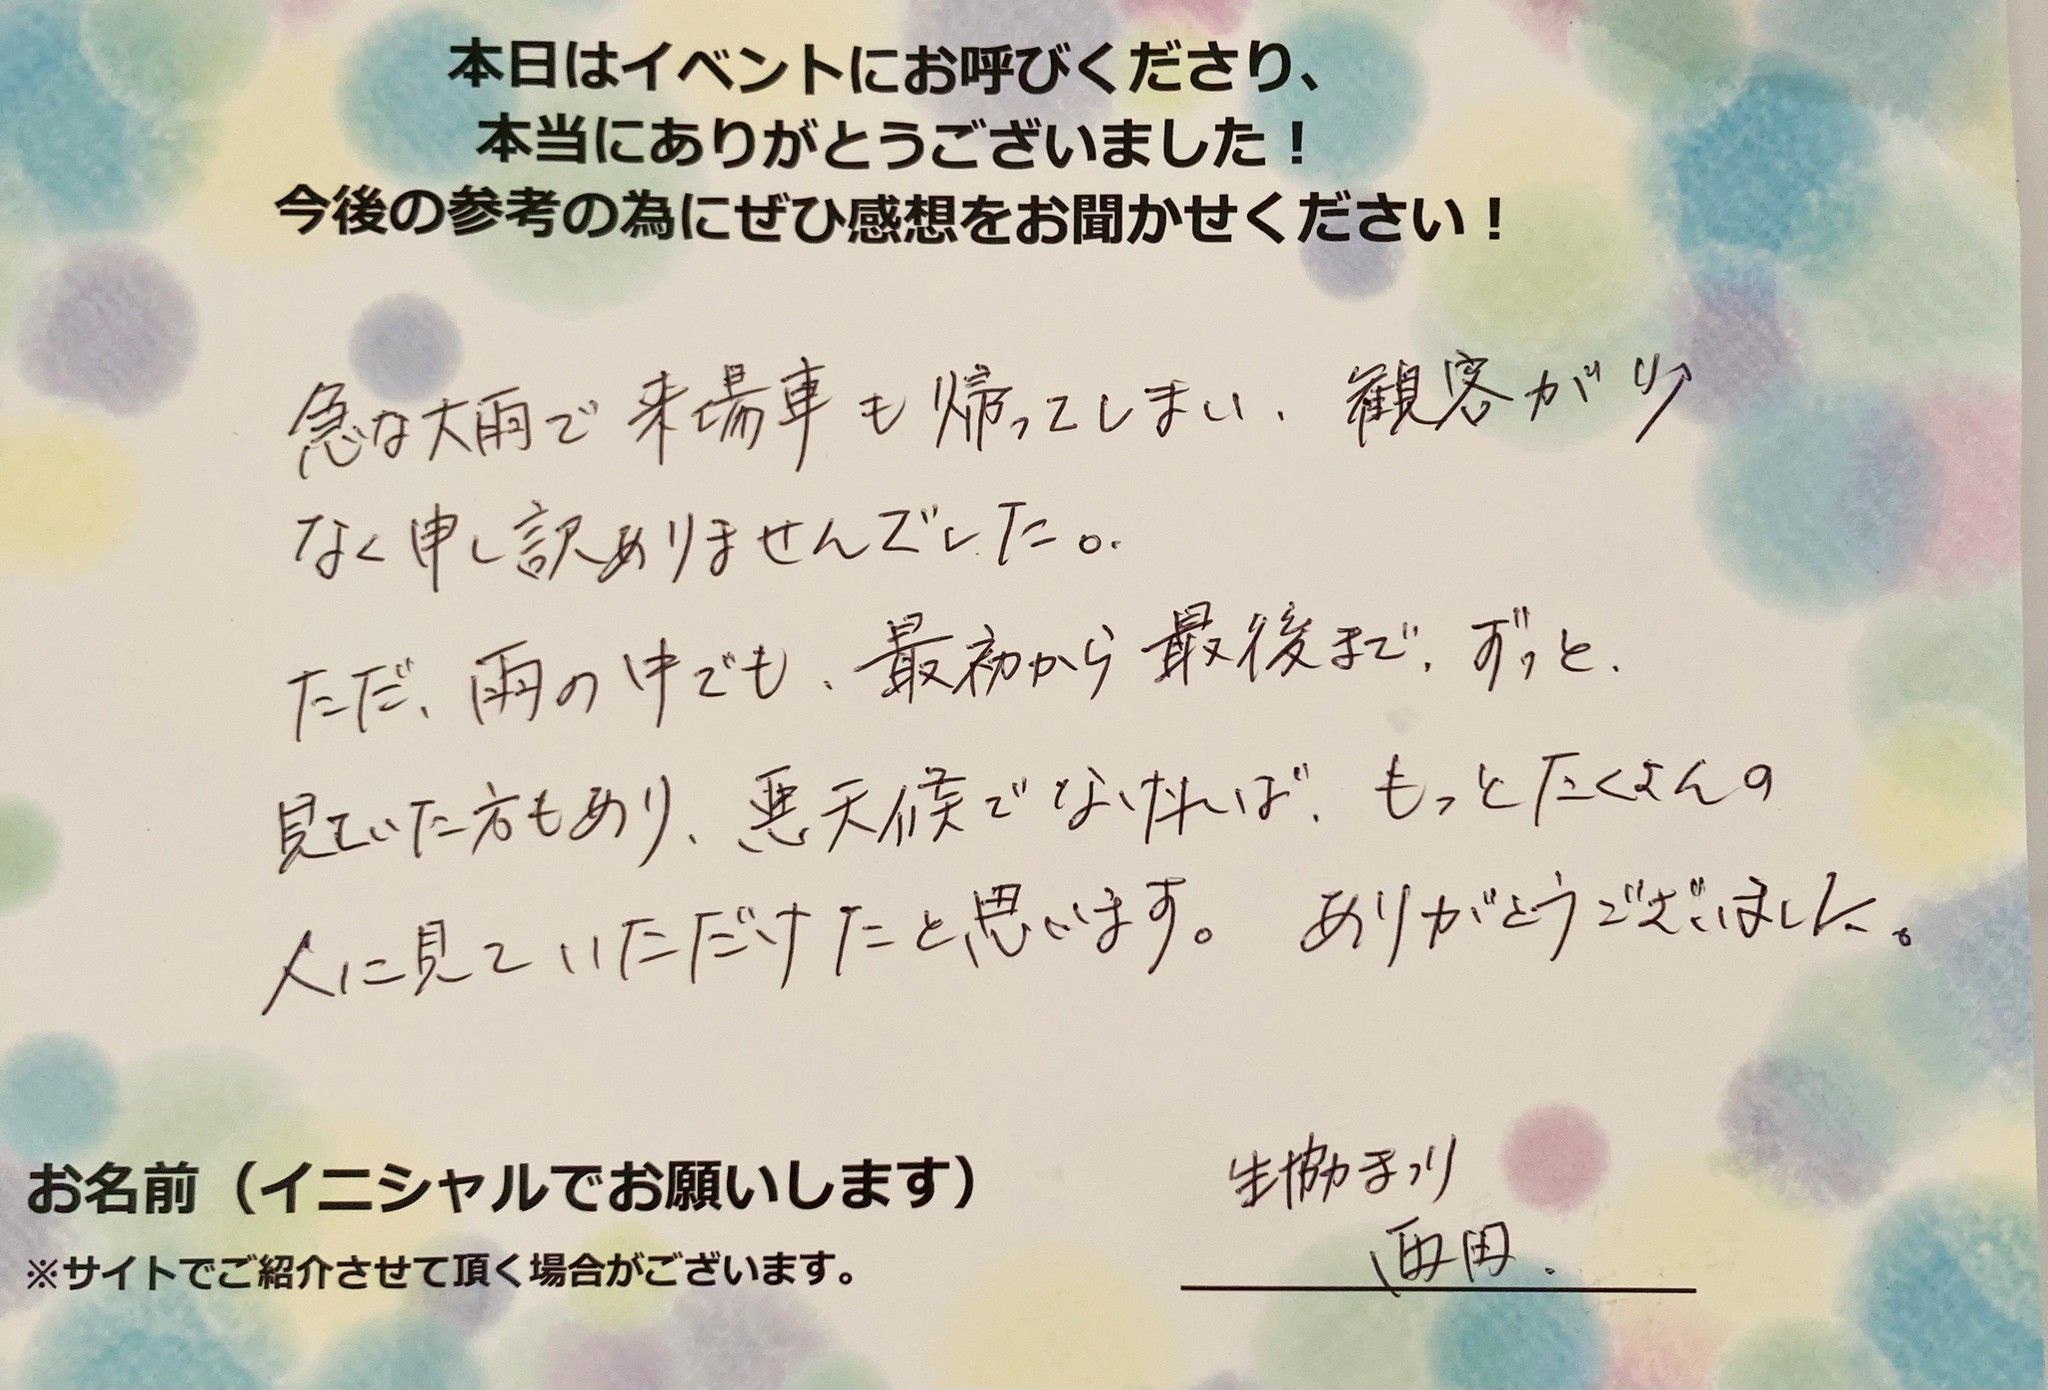 本日はイベントにお呼びくださり、
本当にありがとうございました！
今後の参考の為にぜひ感想をお聞かせください！
急な大雨で来場車も帰ってしまい、観客が少
なく申し訳ありませんでした。
ただ、雨の中でも、最初から最後まで、ずっと、
見ていた方もあり、悪天候でなければ、もっとたくさんの
人に見ていただけたと思います。ありがとうございました。
お名前（イニシャルでお願いします）
生協まつり
西田.
※サイトでご紹介させて頂く場合がございます。